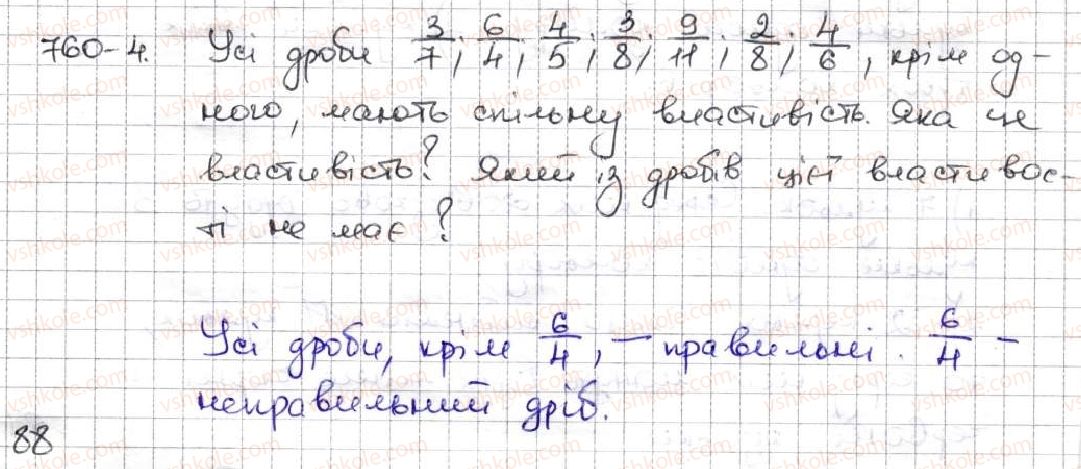 760-4. Усі дроби 3/7; 6/4; 4/5; 3/8; 9/11; 2/8; 4/6, крім од-
ного, мають спільну властивість. Яка це
властивість? Який із дробів цієї властивос-
ті не має?
Усі дроби, крім 6/4, - правильні. 6/4 -
неправильний дріб.
88